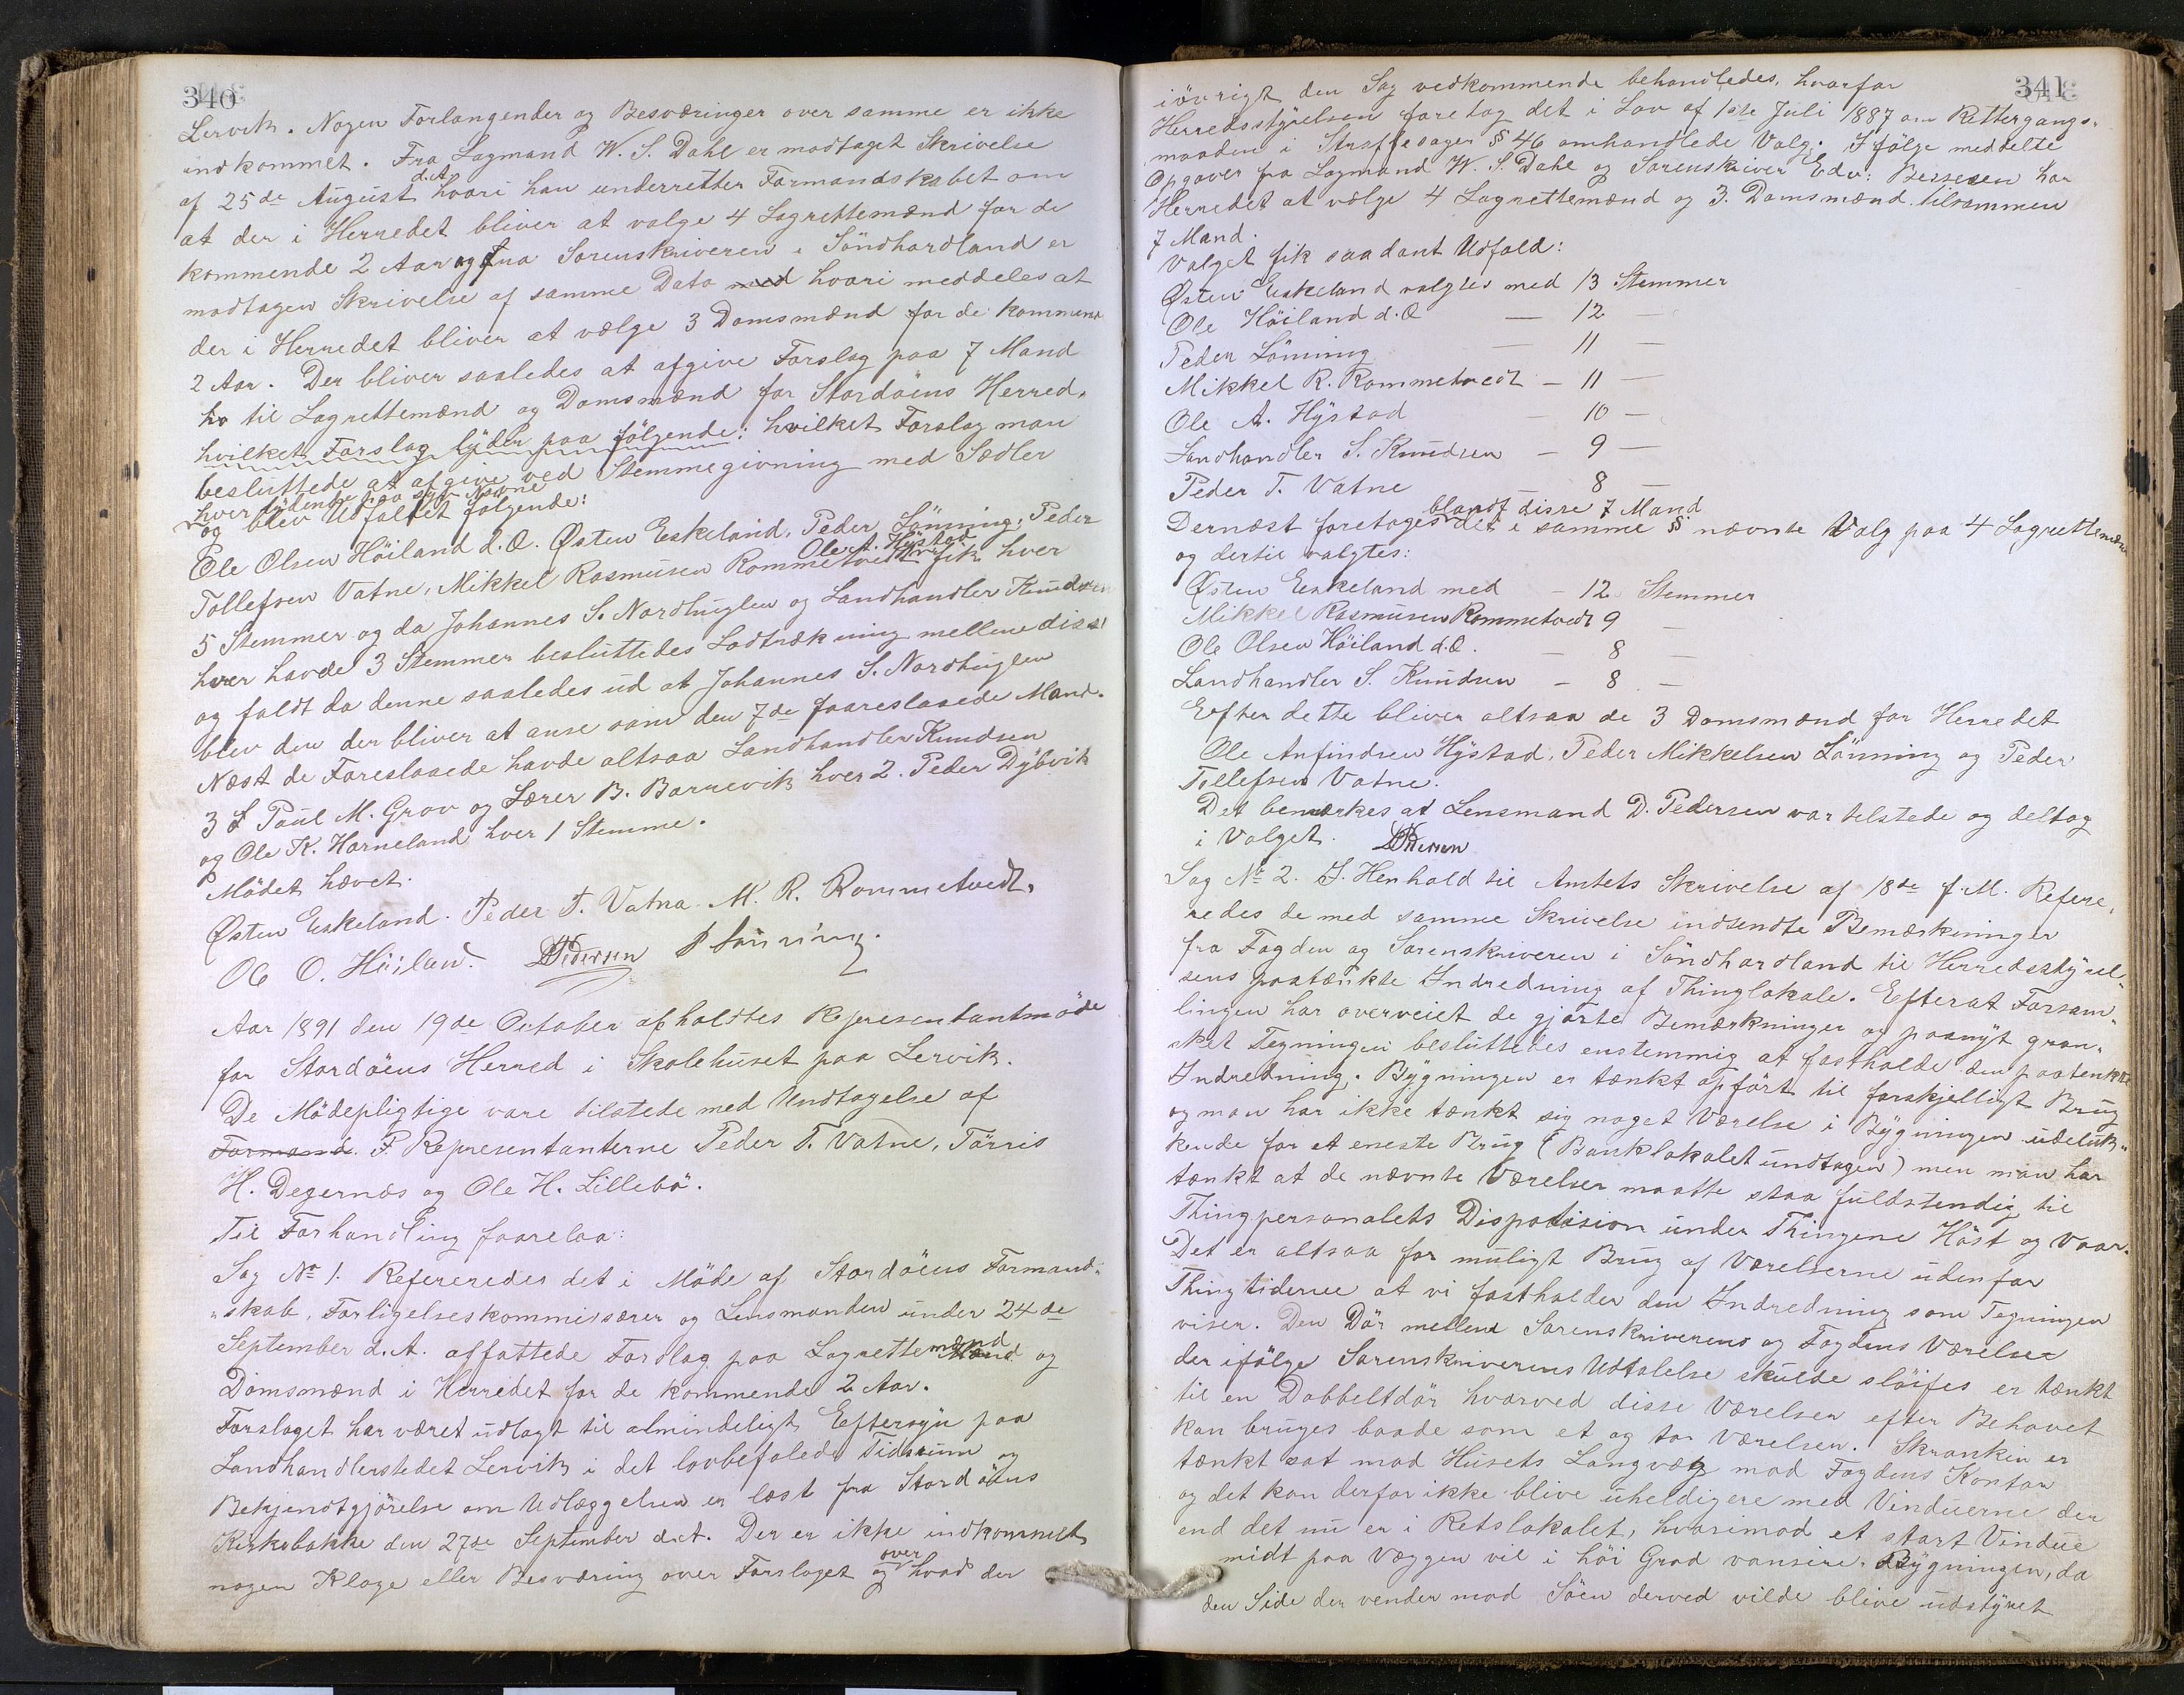 340
Lervik. Nogen Forlangender og Besværinger over samme er ikke
indkommet. Fra Lagmand W. S. Dahl er modtaget Skrivelse
af 25de August d.A. hvori han underretter Formandskabet om
at der i Herredet bliver at valge 4 Lagrettemænd for de
kommende 2 Aar og fra Sorenskriveren i Söndhordland er
modtagen Skrivelse af samme Dato med hvori meddeles at
der i Herredet bliver at vælge 3 Domsmænd for de kommende
2 Aar. Der bliver saaledes at afgive Forslag paa 7 Mand
ho til Lagrettemænd og Domsmænd for Stordöens Herred,
hvilket Forslag lÿder paa fölgende: hvilket Forslag man
besluttede at afgive ved Stemmegivning med Sedler
hver lÿdende paa syv Navne
og blev Udfaldet følgende:
Ole Olsen Höiland d.Æ. Østen Eskeland, Peder Lönning, Peder
Tollefsen Vatne, Mikkel Rasmusen Rommetvedt Ole A. Hÿstad fik hver
5 Stemmer og da Johannes S. Nordhuglen og Landhandler Knudsen
hver havde 3 Stemmer besluttedes Lodtrækning mellem disse
og faldt da denne saaledes ud at Johannes S. Nordhuglen
blev den der bliver at anse som den 7de foareslaaede Mand.
Næst de Foreslaaede havde altsaa Landhandler Knudsen
3 Paul M. Grov og Lærer B. Barnevik hver 2. Peder Dÿbvik
og Ole K. Horneland hver 1 Stemme.
Mödet hævet.
Østen Eskeland. Peder T. Vatna M. R. Rommetvedt.
Ole O. Höiland. DPedersen P Lönning.
Aar 1891 den 19de October afholdtes Representantmöde
for Stordöens Herred i Skolehuset paa Lervik.
De Mödepligtige vare tilstede med Undtagelse af
Formand. F. Representanterne Peder T. Vatne, Törris
H. Degernæs og Ole H. Lillebö.
Til Forhandling foarelaa:
Sag No 1. Refereredes det i Möde af Stordöens Formand-
skab, Forligelseskommissærer og Lensmanden under 24de
September d.A. affattede Forslag paa Lagrettemænd og
Domsmænd i Herredet for de kommende 2 Aar.
Forslaget har været udlagt til almindeligt Eftersyn paa
Landhandlerstedet Lervik i det lovbefalede Tidsrum og
Bekjendtgjörelse om Udlæggelsen er læst fra Stordöens
Kirkebakke den 27de September d.A. Der er ikke indkommet
nogen Klage eller Besværing over Forslaget og over hvad der
341
iövrigt den Sag vedkommende behandledes, hvorfor
Herredsstÿrelsen foretog det i Lov af 1ste Juli 1887 om Rettergangs-
maaden i Straffesager § 46 omhandlede Valg. I fölge meddelte
Opgaver fra Lagmand W. S. Dahl og Sorenskriver Edv: Bessesen har
Herredet at vælge 4 Lagrettemænd og 3. Domsmænd tilsammen
7 Mand.
Valget fik saadant Udfald:
Østen Eskeland valgtes med 13 Stemmer
Ole Höiland d.Æ — 12 —
Peder Lönning — 11 —
Mikkel R. Rommetvedt — 11 —
Ole A. Hÿstad — 10 —
Landhandler S. Knudsen — 9 —
Peder T. Vatne — 8 —
Dernæst foretages blandt disse 7 Mand det i samme § nævnte Valg paa 4 Lagrettemænd
og dertil valgtes:
Østen Eskeland med — 12 Stemmer
Mikkel Rasmusen Rommetvedt 9 —
Ole Olsen Höiland d.Æ. — 8 —
Landhandler S. Knudsen — 8 —
Efter dette bliver altsaa de 3 Domsmænd for Herredet
Ole Anfindsen Hÿstad, Peder Mikkelsen Lönning og Peder
Tollefsen Vatne.
Det bemærkes at Lensmand D. Pedersen var tilstede og deltog
i Valget. DPedersen
Sag No 2. I Henhold til Amtets Skrivelse af 18de f.M. Refere-
redes de med samme Skrivelse indsendte Bemærkninger
fra Fogden og Sorenskriveren i Söndhordland til Herredsstÿrel-
sens paatænkte Indredning af Thinglokale. Efterat Forsam-
lingen har overveiet de gjorte Bemærkninger og paanÿt gran-
sket Tegningen besluttedes enstemmig at fastholde den paatænkte
Indredning. Bÿgningen er tænkt opfört til forskjelligt Brug
og man har ikke tænkt sig noget Værelse i Bÿgningen udeluk-
kende for et eneste Brug (Banklokalet undtagen) men man har
tænkt at de nævnte Værelser maatte staa fuldstendig til
Thingpersonalets Disposision under Thingene Höst og Vaar.
Det er altsaa for muligt Brug af Værelserne udenfor
Thingtiderne at vi fastholder den Indredning som Tegningen
viser. Den Dör mellem Sorenskriverens og Fogdens Værelse
der ifölge Sorenskriverens Udtalelse skulde slöifes er tænkt
til en Dobbeltdör hvorved disse Værelser efter Behovet
kan bruges baade som et og to Værelser. Skranken er
tænkt sat mod Husets Langvæg mod Fogdens Kontor
og det kan derfor ikke blive uheldigere med Vinduerne der
end det nu er i Retslokalet, hvorimod et stort Vindue
midt paa Væggen vil i höi Grad vansire Bÿgningen, da
den Side der vender mod Söen derved vilde blive udstÿret